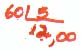 60 5
12,00